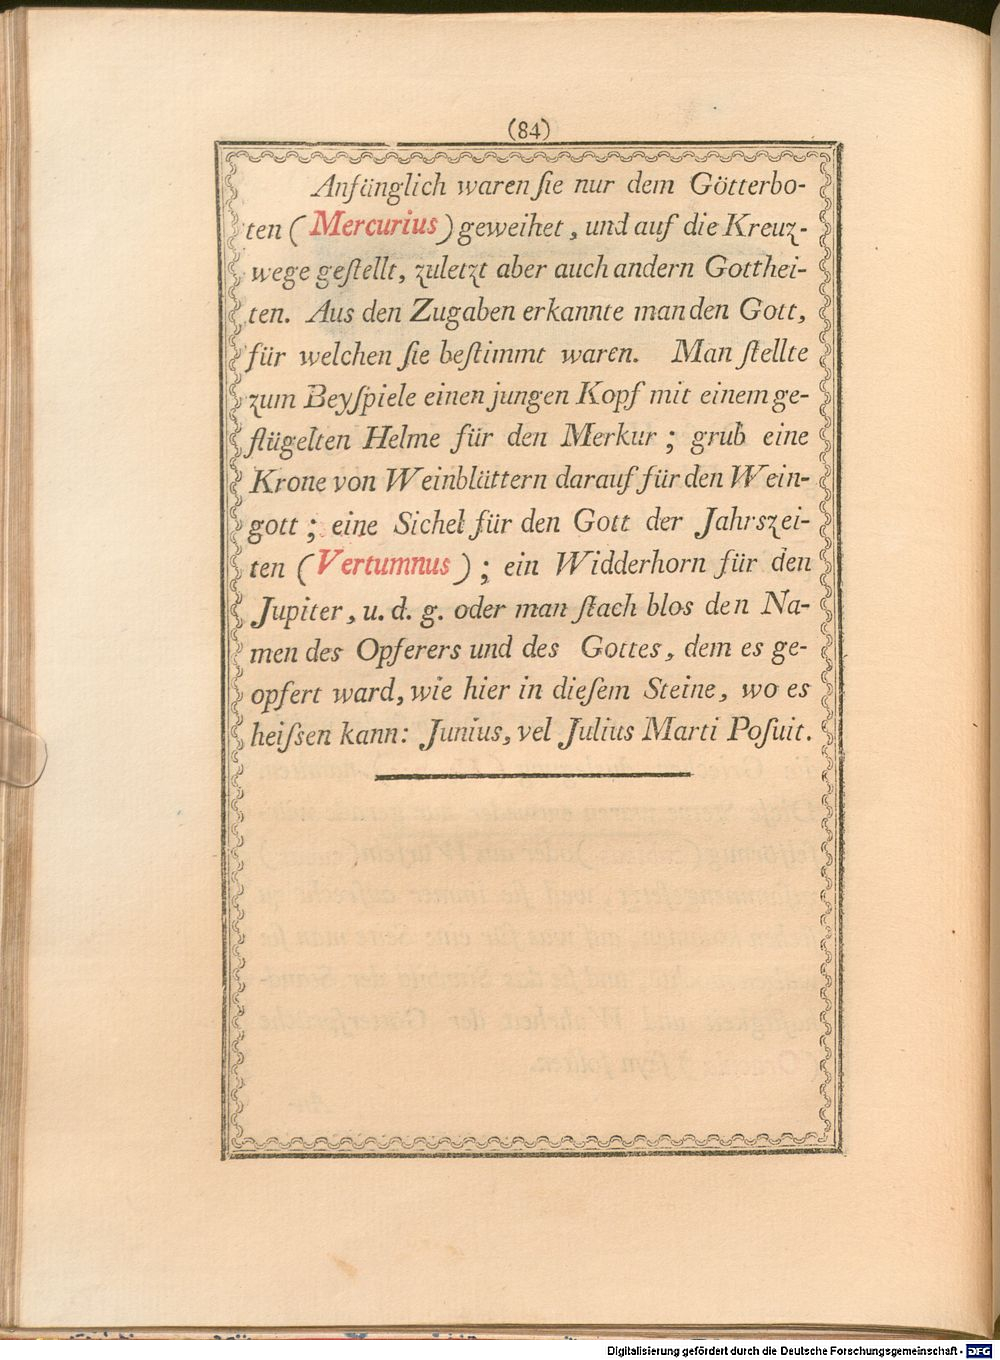 (84)
Anfänglich waren ſie nur dem Götterbo-
ten (Mercurius) geweihet, und auf die Kreuz-
wege geſtellt, zuletzt aber auch andern Gotthei-
ten. Aus den Zugaben erkannte man den Gott,
für welchen ſie beſtimmt waren. Man ſtellte
zum Beyſpiele einen jungen Kopf mit einem ge-
flügelten Helme für den Merkur; grub eine
Krone von Weinblättern darauf für den Wein-
gott; eine Sichel für den Gott der Jahrszei-
ten (Vertumnus); ein Widderhorn für den
Jupiter, u. d. g. oder man ſtach blos den Na-
men des Opferers und des Gottes, dem es ge-
opfert ward, wie hier in dieſem Steine, wo es
heiſsen kann: Junius, vel Julius Marti Poſuit.
Digitalisierung gefördert durch die Deutsche Forschungsgemeinschaft - DFG